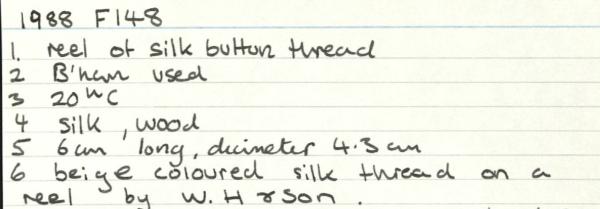 1988 F148
1. reel of silk button thread
2 B'ham used
3 20th C
4 silk, wood
5 6cm long, diameter 4.3 cm
6 beige coloured silk thread on a
reel by W.H & Son.